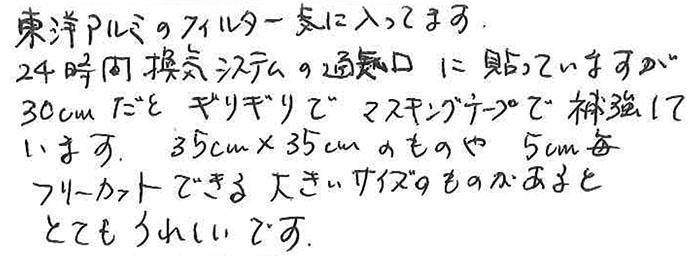 東洋アルミのフィルター気に入ってます.
24時間換気システムの通気口に貼っていますが
30cmだとギリギリでマスキングテープで補強して
います. 35cm×35cmのものや 5cm毎
フリーカットできる大きいサイズのものがあると
とてもうれしいです.